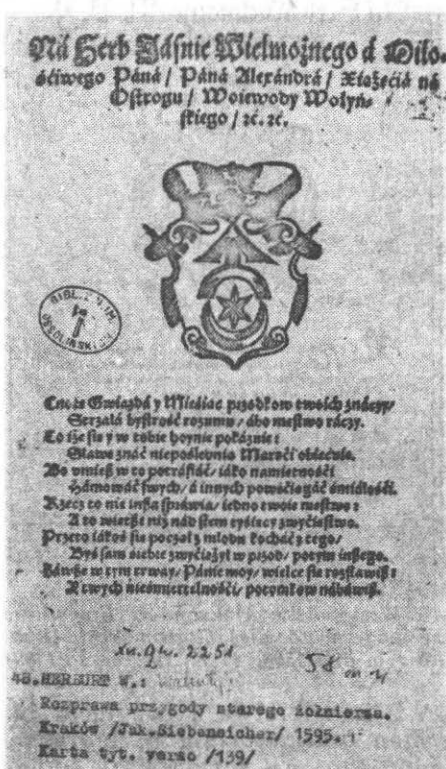 Ná Herb Jásnie Wielmożnego á Miło-
ściwego Páná / Páná Alexándrá / Xiążęciá ná
Ostrogu / Woiewody Wołyń-
skiego / ꝛc. ꝛc.
BIBL. Z. N. IM.
OSSOLIŃSKICH
Cnotę Gwiazdá y Miesiąc przodkow twoich znáczy/
Strzałá bystrość rozumu / ábo męstwo ráczy.
To iże się y w tobie hoynie pokázuie:
Sławę znáć niepoślednią
Bo vmiesz w to potráfiáć / iáko namiętności
Hámowáć swych / á innych powściągáć śmiáłości.
Rzecz to nie inszá spráwiá / iedno twoie męstwo:
A to więtsze niż nád stem tysięcy zwycięstwo.
Przeto iákoś się począł z młodu kocháć z tego/
Byś sam siebie zwyciężył w przod / potym inszego.
Záwsze w tym trway / Pánie moy / wielce się rozsławisz:
Y twych nieśmiertelności / potomkow nábáwisz.
xvi. Qu. 2251
58
48. HERBURT W.:
Rozprawa przygody starego żołnierza.
Kraków /Jak.Siebeneicher/ 1595.
Karta tyt. verso /139/